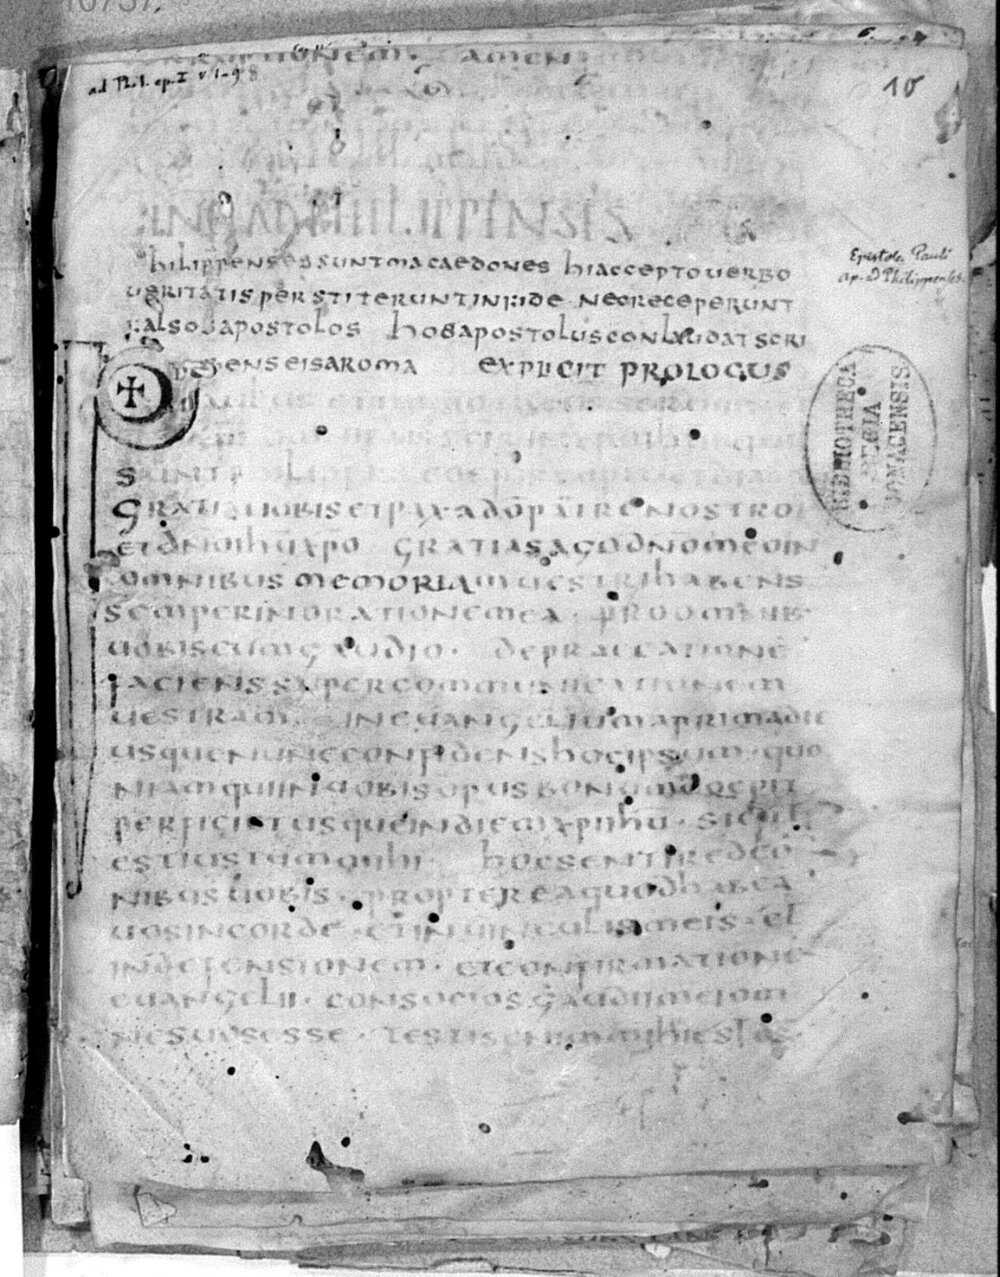 10737.
RATIONEM. AMEN
ad Phil. ep. I v. 1-9
10
INC AD FILIPPINSIS
hilippenses sunt macaedones hi accepto uerbo
Epistola Pauli
ap. ad Philippenses.
ueritatis perstiterunt in fide nec receperunt
falsos apostolos hos apostolus conlaudat scri
bens eis a roma explicit prologus
BIBLIOTHECA
REGIA
MONACENSIS
s
Gratia uobis et pax a do patre nostro
et dno ihu xpo gratias ago dno meo in
omnibus memoriam uestri habens
semper in oratione mea. pro omnib.
uobis cum gaudio. deprecatione
faciens super communicationem
uestram. in euangelium a prima die
usque nunc confidens hoc ipsum. quo
niam qui in uobis opus bonum
perficiet usque in diem xpi ihu. sicut
est iustum mihi. hoc sentire de o
nibus uobis. propterea quod habea
uos in corde. et in uinculis meis. et
in defensionem. et confirmatione
euangelii. consocios gaudii mei om
nes uos esse. testis enim mihi est ds